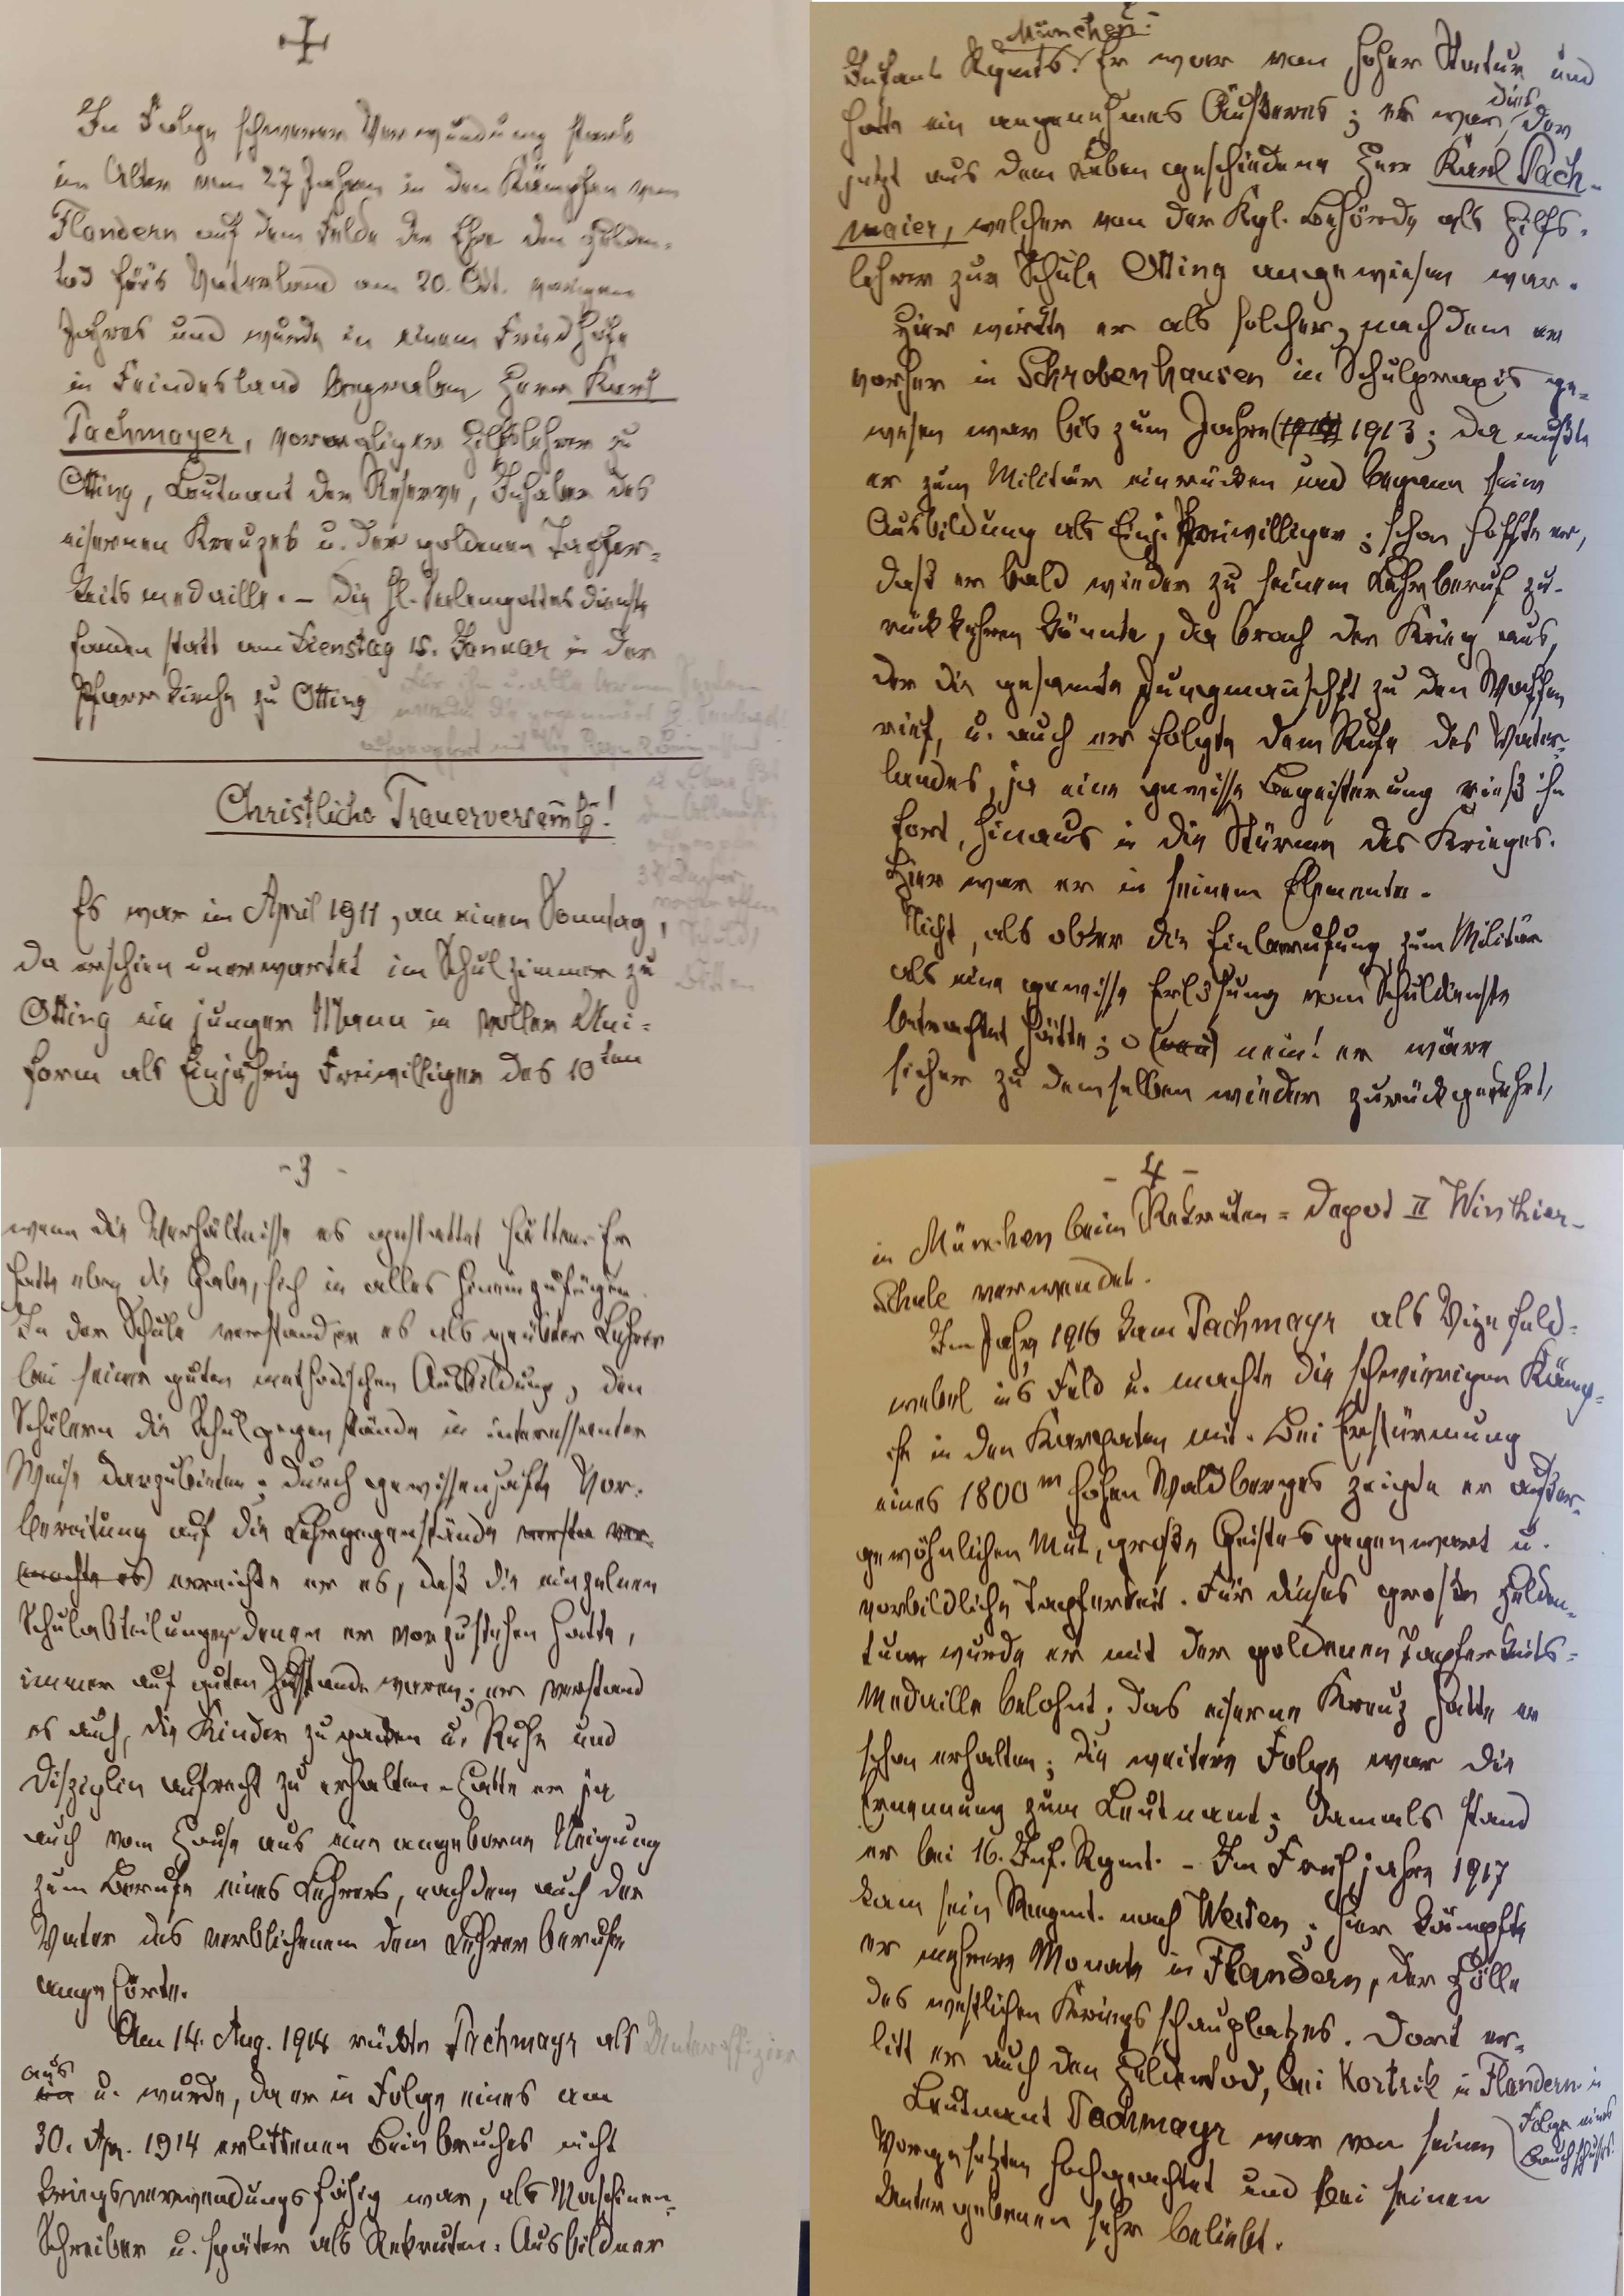 In Folge schwerer Verwundung starb
im Alter von 27 Jahren in den Kämpfen von
Flandern auf dem Felde der Ehre den Helden-
tod für's Vaterland am 20. Okt. vorigen
Jahres und wurde in einem Friedhofe
in Feindesland begraben Herr Karl
Pachmayer, vormaliger Hilfslehrer zu
Otting, Leutnant der Reserve, Inhaber des
eisernen Kreuzes u. der goldenen Tapfer-
keitsmedaille. – Die hl. Seelengottesdienste
fanden statt am Dienstag 15. Januar in der
Pfarrkirche zu Otting
Christliche Trauerversamlg!
Es war im April 1911, an einem Sonntag,
da erschien unerwartet im Schulzimmer zu
Otting ein junger Mann in voller Uni-
form als Einjährig Freiwilliger des 10ten
München:
Infant Rgmts. Er war von hoher Statur und
hatte ein angenehmes Äußeres; es war dies der
jetzt aus dem Leben geschiedene Herr Karl Pach-
maier, welcher von der Kgl. Behörde als Hilfs-
lehrer zur Schule Otting angewiesen war.
Hier wirkte er als solcher, nachdem er
vorher in Schrobenhausen in Schulpraxis ge-
wesen war bis zum Jahre 1913; da mußte
er zum Militär einrücken und begann seine
Ausbildung als Einj. Freiwilliger; schon hoffte er,
daß er bald wieder zu seinem Lehrberuf zu-
rückkehren könnte, da brach der Krieg aus,
der die gesamte Jungmanschft zu den Waffen
rief, u. auch er folgte dem Rufe des Vater-
landes, ja eine gewisse Begeisterung rieß ihn
fort, hinaus in die Stürme des Krieges.
Hier war er in seinem Elemente.
Nicht, als ob er die Einberufung zum Militär
als eine gewisse Erlösung vom Schuldienste
betrachtet hätte; o nein! er wäre
sicher zu demselben wieder zurückgekehrt,
- 3 -
wenn die Verhältnisse es gestattet hätten. Er
hatte eben die Gabe, sich in alles hineinzufügen.
In der Schule verstand er es als geübter Lehrer
bei seiner guten methodischen Ausbildung, den
Schülern die Schulgegenstände in interessanter
Weise darzubieten; durch gewissenhafte Vor-
bereitung auf die Lehrgegenstände
(mochte es) erreichte er es, daß die einzelnen
Schulabteilungen denen er vorzustehen hatte,
immer auf guten Zustande waren; er verstand
es auch, die Kinder zu u. Ruhe und
Disziplin aufrecht zu erhalten. Hatte er ja
auch vom Hause aus eine angeborne Neigung
zum Berufe eines Lehrers, nachdem auch der
Vater des verblichenem dem Lehrerberufe
angehörte.
Am 14. Aug. 1914 rückte Pachmayr als Unteroffizier
aus
u. wurde, da er in Folge eines am
30. Apr. 1914 erlittenen Beinbruches nicht
kriegsverwendungsfähig war, als Maschinen-
Schreiber u. später als Rekruten-Ausbildner
- 4 -
in München beim Rekruten-Depot II Winthier-
Schule verwendet.
Im Jahr 1916 kam Pachmayr als Vizefeld-
webel ins Feld u. machte die schwierigen Kämp-
fe in den Karpaten mit. Bei Erstürmung
eines 1800 m hohen Waldberges zeigte er außer-
gewöhnlichen Mut, große Geistesgegenwart u.
vorbildliche Tapferkeit. Für dieses große Helden-
tum wurde er mit der goldenen Tapferkeits-
Medaille belohnt; das eiserne Kreuz hatte er
schon erhalten; die weitere Folge war die
Ernennung zum Leutnant; damals stand
er bei 16. Inf. Rgmt. – Im Frühjahre 1917
kam sein Regmt. nach Westen; hier kämpfte
er mehrere Monate in Flandern, der Hölle
des westlichen Kriegsschauplatzes. Dort er-
litt er auch den Heldentod, bei Kortrik in Flandern in
Folge eines
Bauchschußes.
Leutnant Pachmayr war von seinen
Vorgesetzten hochgeachtet und bei seinen
Untergebenen sehr beliebt.